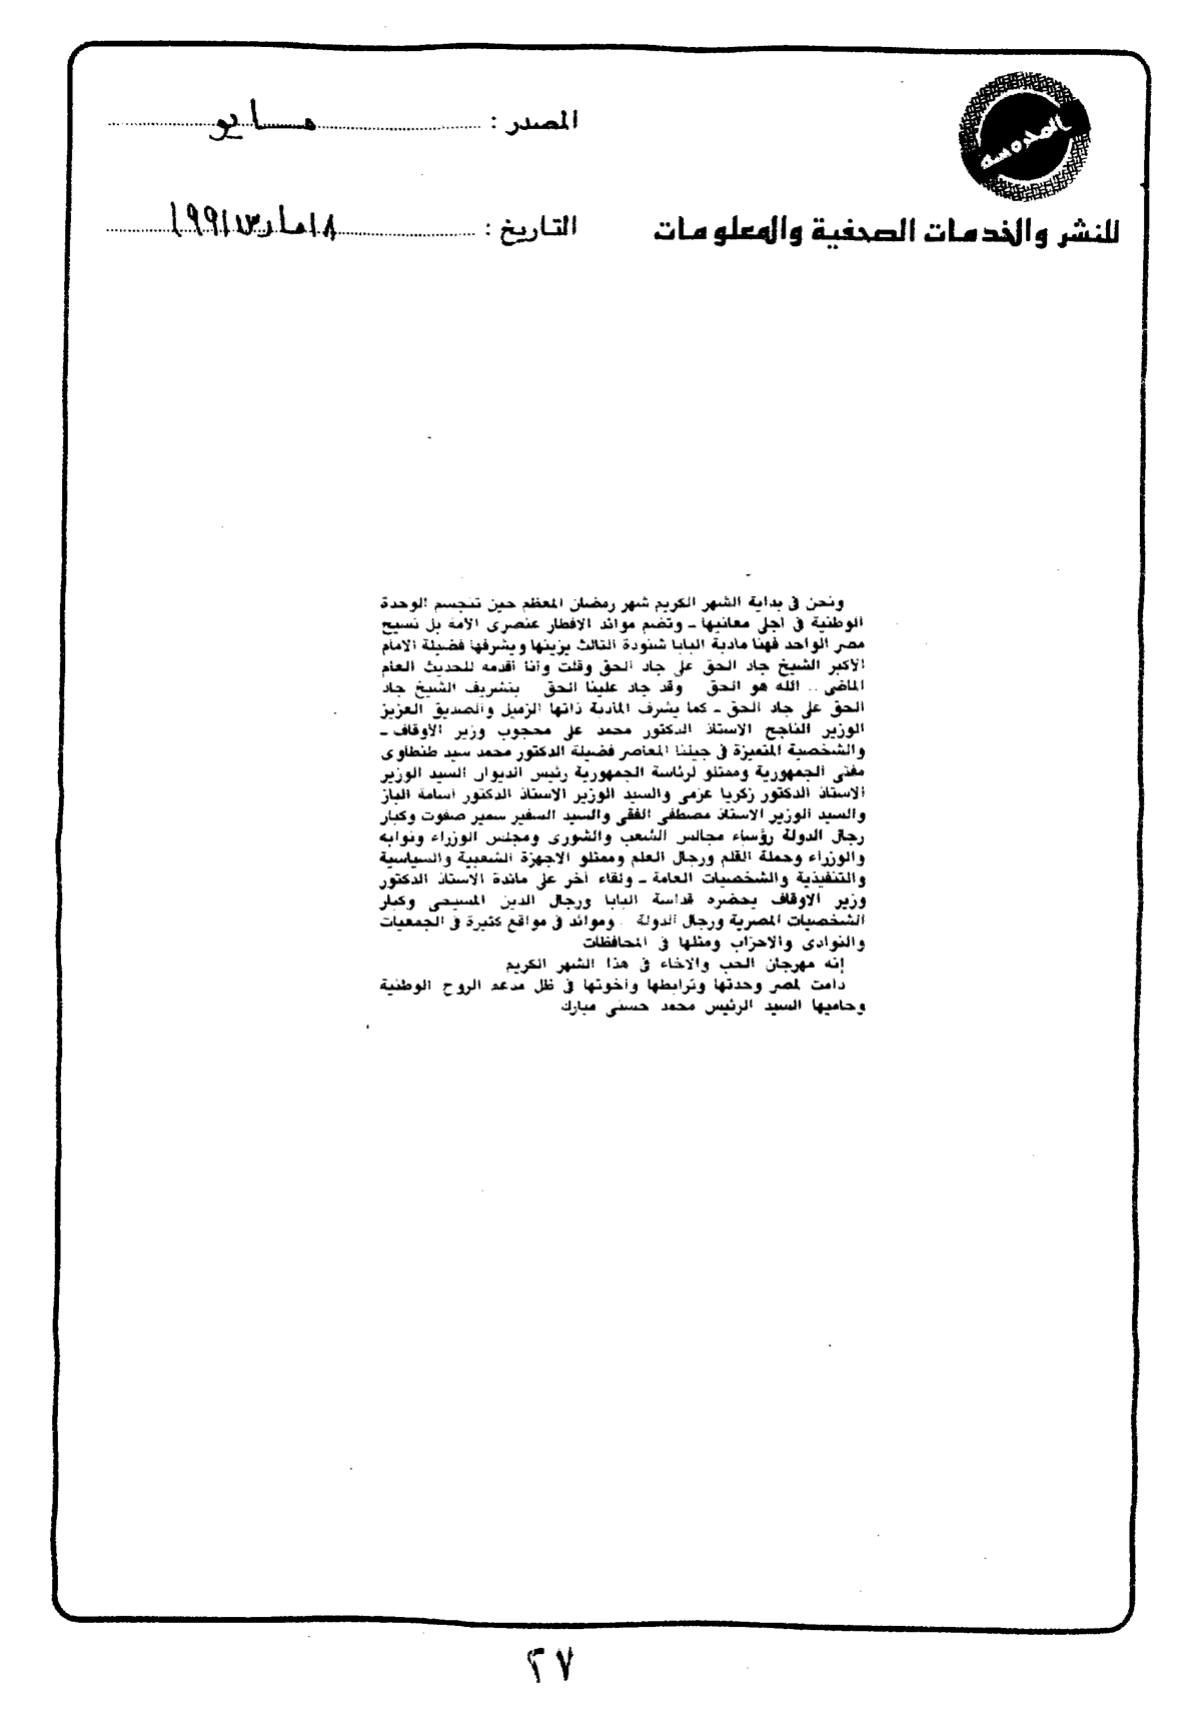 المصدر : مايو
المحروسة
للنشر والخدمات الصحفية والمعلومات
التاريخ : ١٨ مارس ١٩٩١
ونحن فى بداية الشهر الكريم شهر رمضان المعظم حين تتجسم الوحدة
الوطنية فى اجلى معانيها ـ وتضم موائد الافطار عنصرى الأمة بل نسيج
مصر الواحد فهنا مادبة البابا شنودة الثالث يزينها ويشرفها فضيلة الامام
الاكبر الشيخ جاد الحق على جاد الحق وقلت وأنا أقدمه للحديث العام
الماضى .. الله هو الحق وقد جاد علينا الحق بتشريف الشيخ جاد
الحق على جاد الحق ـ كما يشرف المأدبة ذاتها الزميل والصديق العزيز
الوزير الناجح الاستاذ الدكتور محمد على محجوب وزير الأوقاف ـ
والشخصية المتميزة فى جيلنا المعاصر فضيلة الدكتور محمد سيد طنطاوى
مفتى الجمهورية وممثلو لرئاسة الجمهورية رئيس الديوان السيد الوزير
الاستاذ الدكتور زكريا عزمى والسيد الوزير الاستاذ الدكتور أسامة الباز
والسيد الوزير الاستاذ مصطفى الفقى والسيد السفير سمير صفوت وكبار
رجال الدولة رؤساء مجالس الشعب والشورى ومجلس الوزراء ونوابه
والوزراء وحملة القلم ورجال العلم وممثلو الاجهزة الشعبية والسياسية
والتنفيذية والشخصيات العامة ـ ولقاء أخر على مائدة الاستاذ الدكتور
وزير الاوقاف يحضره قداسة البابا ورجال الدين المسيحى وكبار
الشخصيات المصرية ورجال الدولة . وموائد فى مواقع كثيرة فى الجمعيات
والنوادى والاحزاب ومثلها فى المحافظات
إنه مهرجان الحب والاخاء فى هذا الشهر الكريم
دامت لمصر وحدتها وترابطها وأخوتها فى ظل مدعم الروح الوطنية
وحاميها السيد الرئيس محمد حسنى مبارك
٢٧